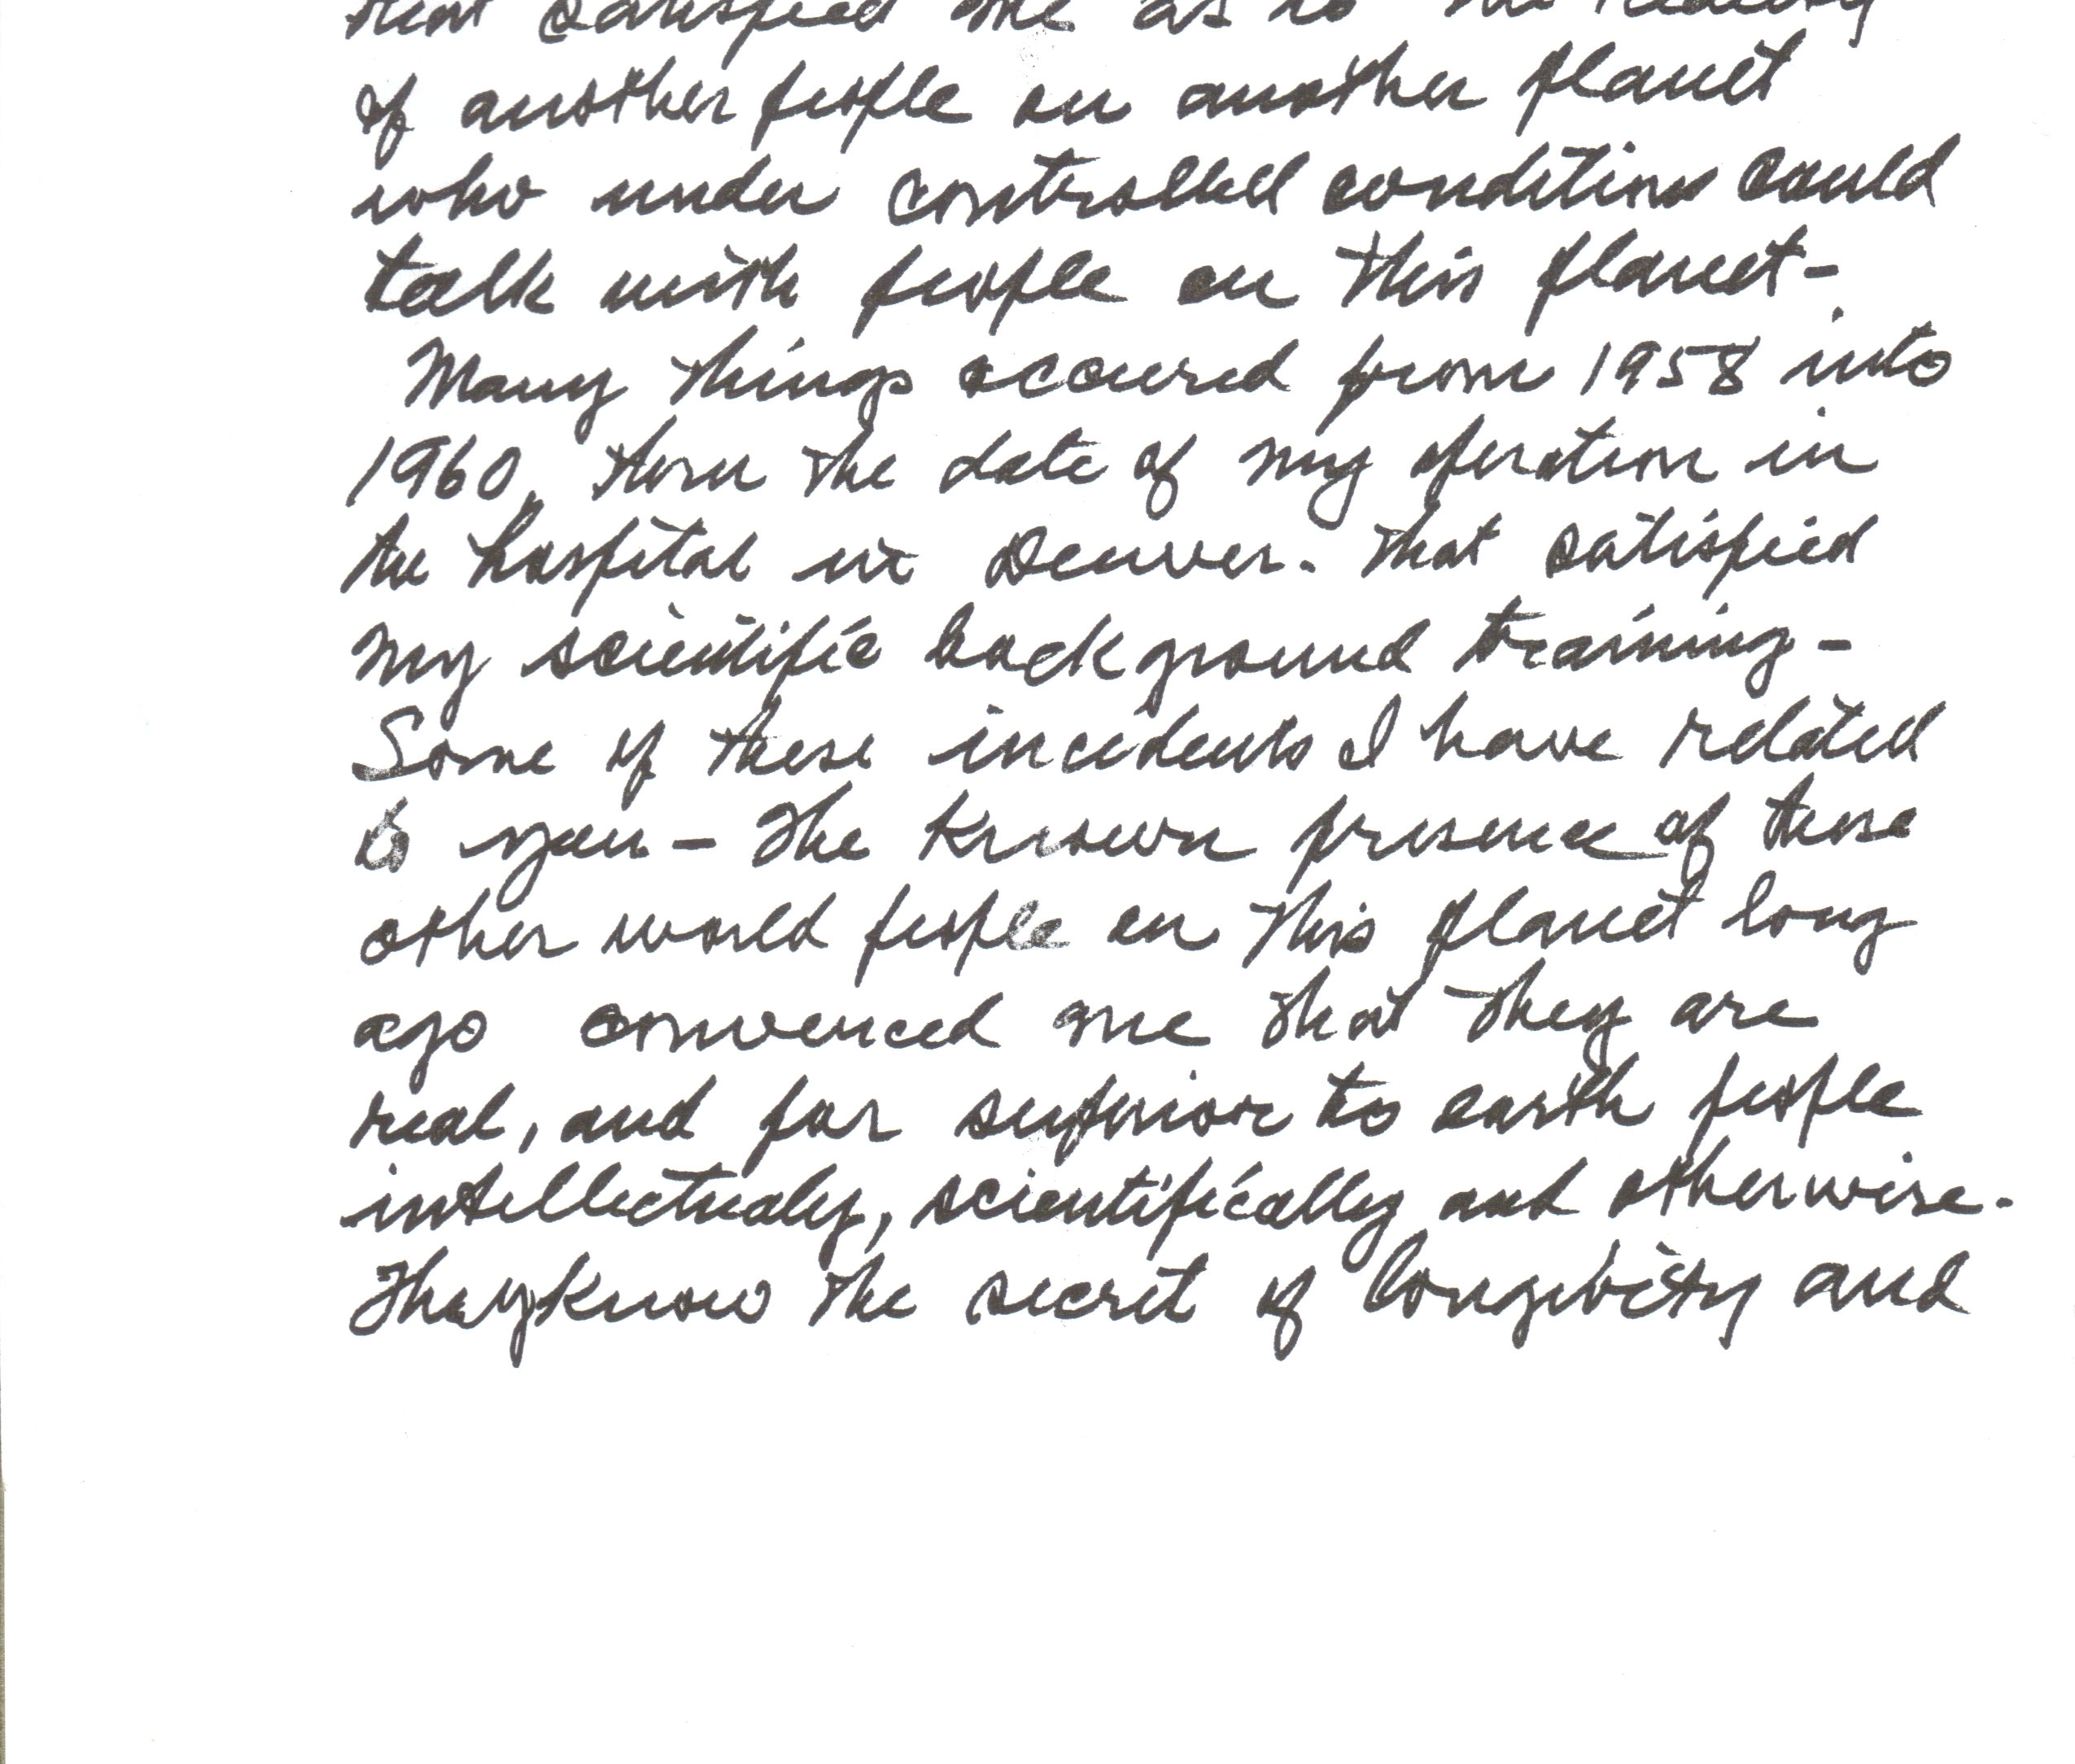 that satisfied me as to the reality
of another people on another planet
who under controlled conditions could
talk with people on this planet-
Many things occured from 1958 into
1960, the date of my operation in
the hospital in Denver. That satisfied
my scientific background training-
Some of these incidents I have related
to you - The known presence of these
other world people on this planet long
ago convenced me that they are
real, and far superior to earth people
intellectualy, scientifically and otherwise.
They know the secret of longivity and